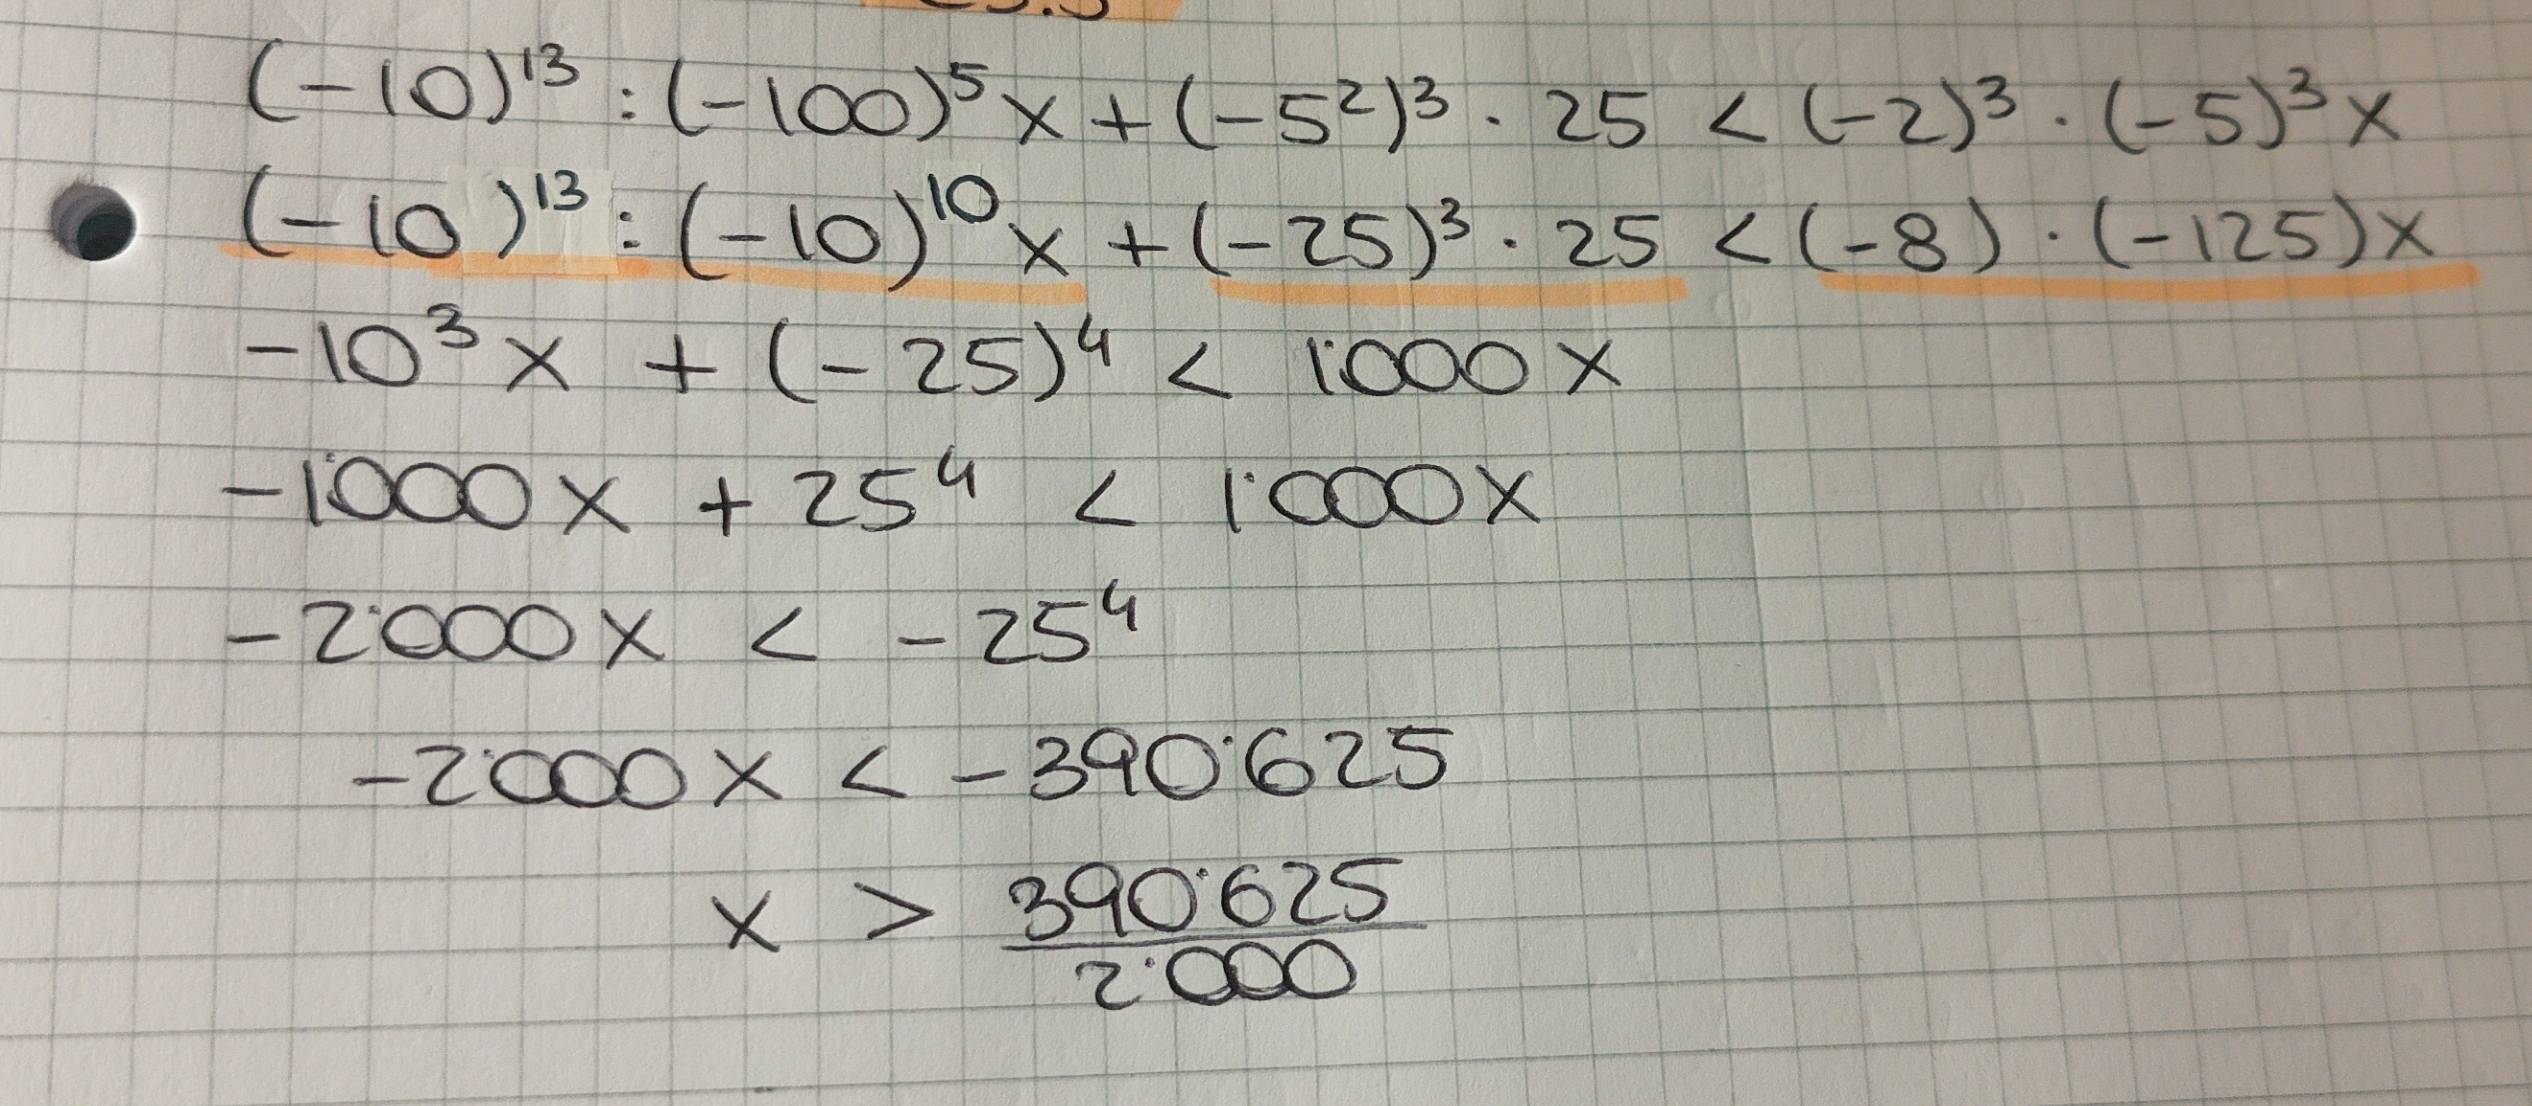 (-10)¹³ : (-100)⁵x + (-5²)³ · 25 < (-2)³ · (-5)³x
(-10)¹³ : (-10)¹⁰x + (-25)³ · 25 < (-8) · (-125)x
-10³x + (-25)⁴ < 1'000x
-1'000x + 25⁴ < 1'000x
-2'000x < -25⁴
-2'000x < -390'625
x > 390'625/2'000